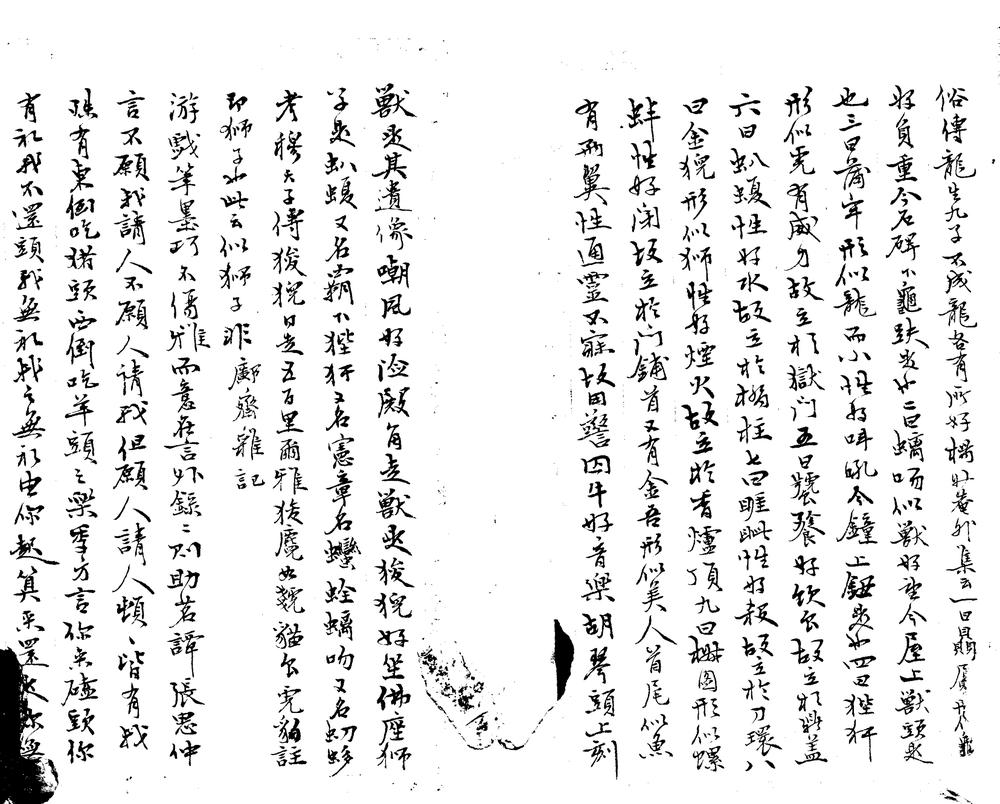 俗傳龍生九子不成龍各有所好楊升菴外集云一曰贔屭形似龜
好負重今石碑下龜趺是也二曰螭吻似獸好望今屋上獸頭是
也三曰蒲牢形似龍而小性好吽吼今鐘上鈕是也四曰狴犴
形似虎有威力故立於獄門五曰饕餮好飲食故立於鼎盖
六曰趴蝮性好水故立於橋柱七曰睚眦性好殺故立於刀環八
曰金猊形似獅性好煙火故立於香爐頂九曰椒圖形似螺
蚌性好闭故立於门鋪首又有金吾形似美人首尾似魚
有兩翼性通靈不寐故用警囚牛好音樂胡琴頭上刻
獸是其遺像嘲風好險殿角走獸是狻猊好坐佛座獅
子是趴蝮又名霸下狴犴又名憲章名蠻蛭螭吻又名
考穆天子傳狻猊日走五百里爾雅狻麑如虦貓食虎豹註
即獅子也此云似獅子非 齋雜記
游戲筆墨巧不傷雅而意在言外錄之則助茗譚張思仲
言不願我請人不願人請我但願人請人頓頓皆有我
有東倒吃猪頭西倒吃羊頭之樂方言你無碰頭你
有礼我不還頭我無礼我之無礼由你起算来還是你無